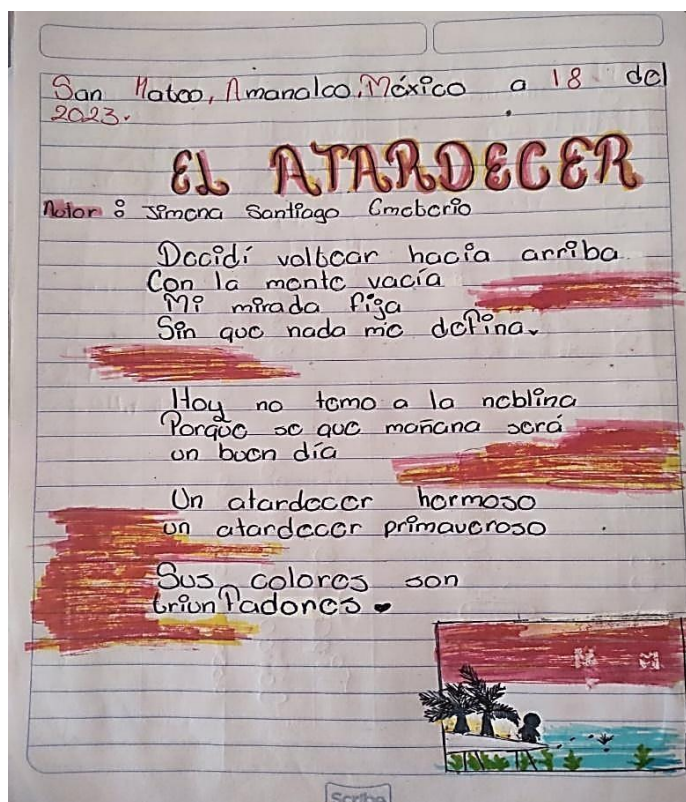 San Mateo, Amanalco, México a 18 del
2023.
EL ATARDECER
Autor : Jimena Santiago Emeterio
Decidí voltear hacia arriba
Con la mente vacía
Mi mirada fija
Sin que nada me defina.
Hoy no temo a la neblina
Porque se que mañana será
un buen día
Un atardecer hermoso
un atardecer primaveroso
Sus colores son
triunfadores
Scribe